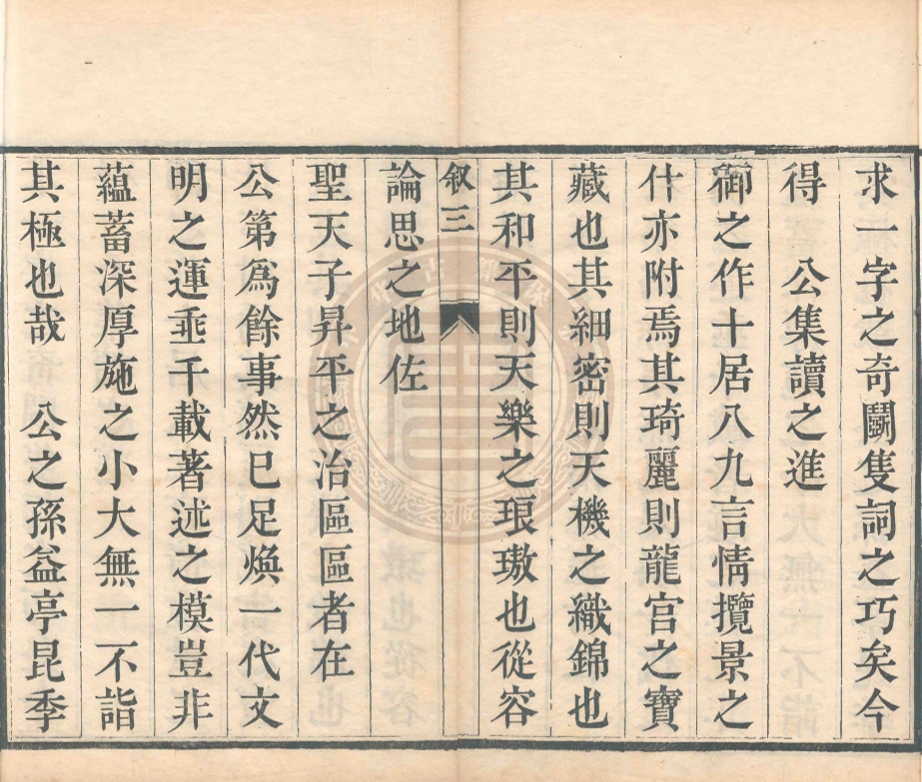 求一字之奇鬭隻詞之巧矣今
得　公集讀之進
御之作十居八九言情攬景之
什亦附焉其琦麗則龍宮之寶
藏也其細密則天機之織錦也
其和平則天樂之琅璈也從容
叙三
論思之地佐
聖天子昇平之治區區者在
公第爲餘事然已足煥一代文
明之運垂千載著述之模豈非
蘊蓄深厚施之小大無一不詣
其極也哉　公之孫益亭昆季